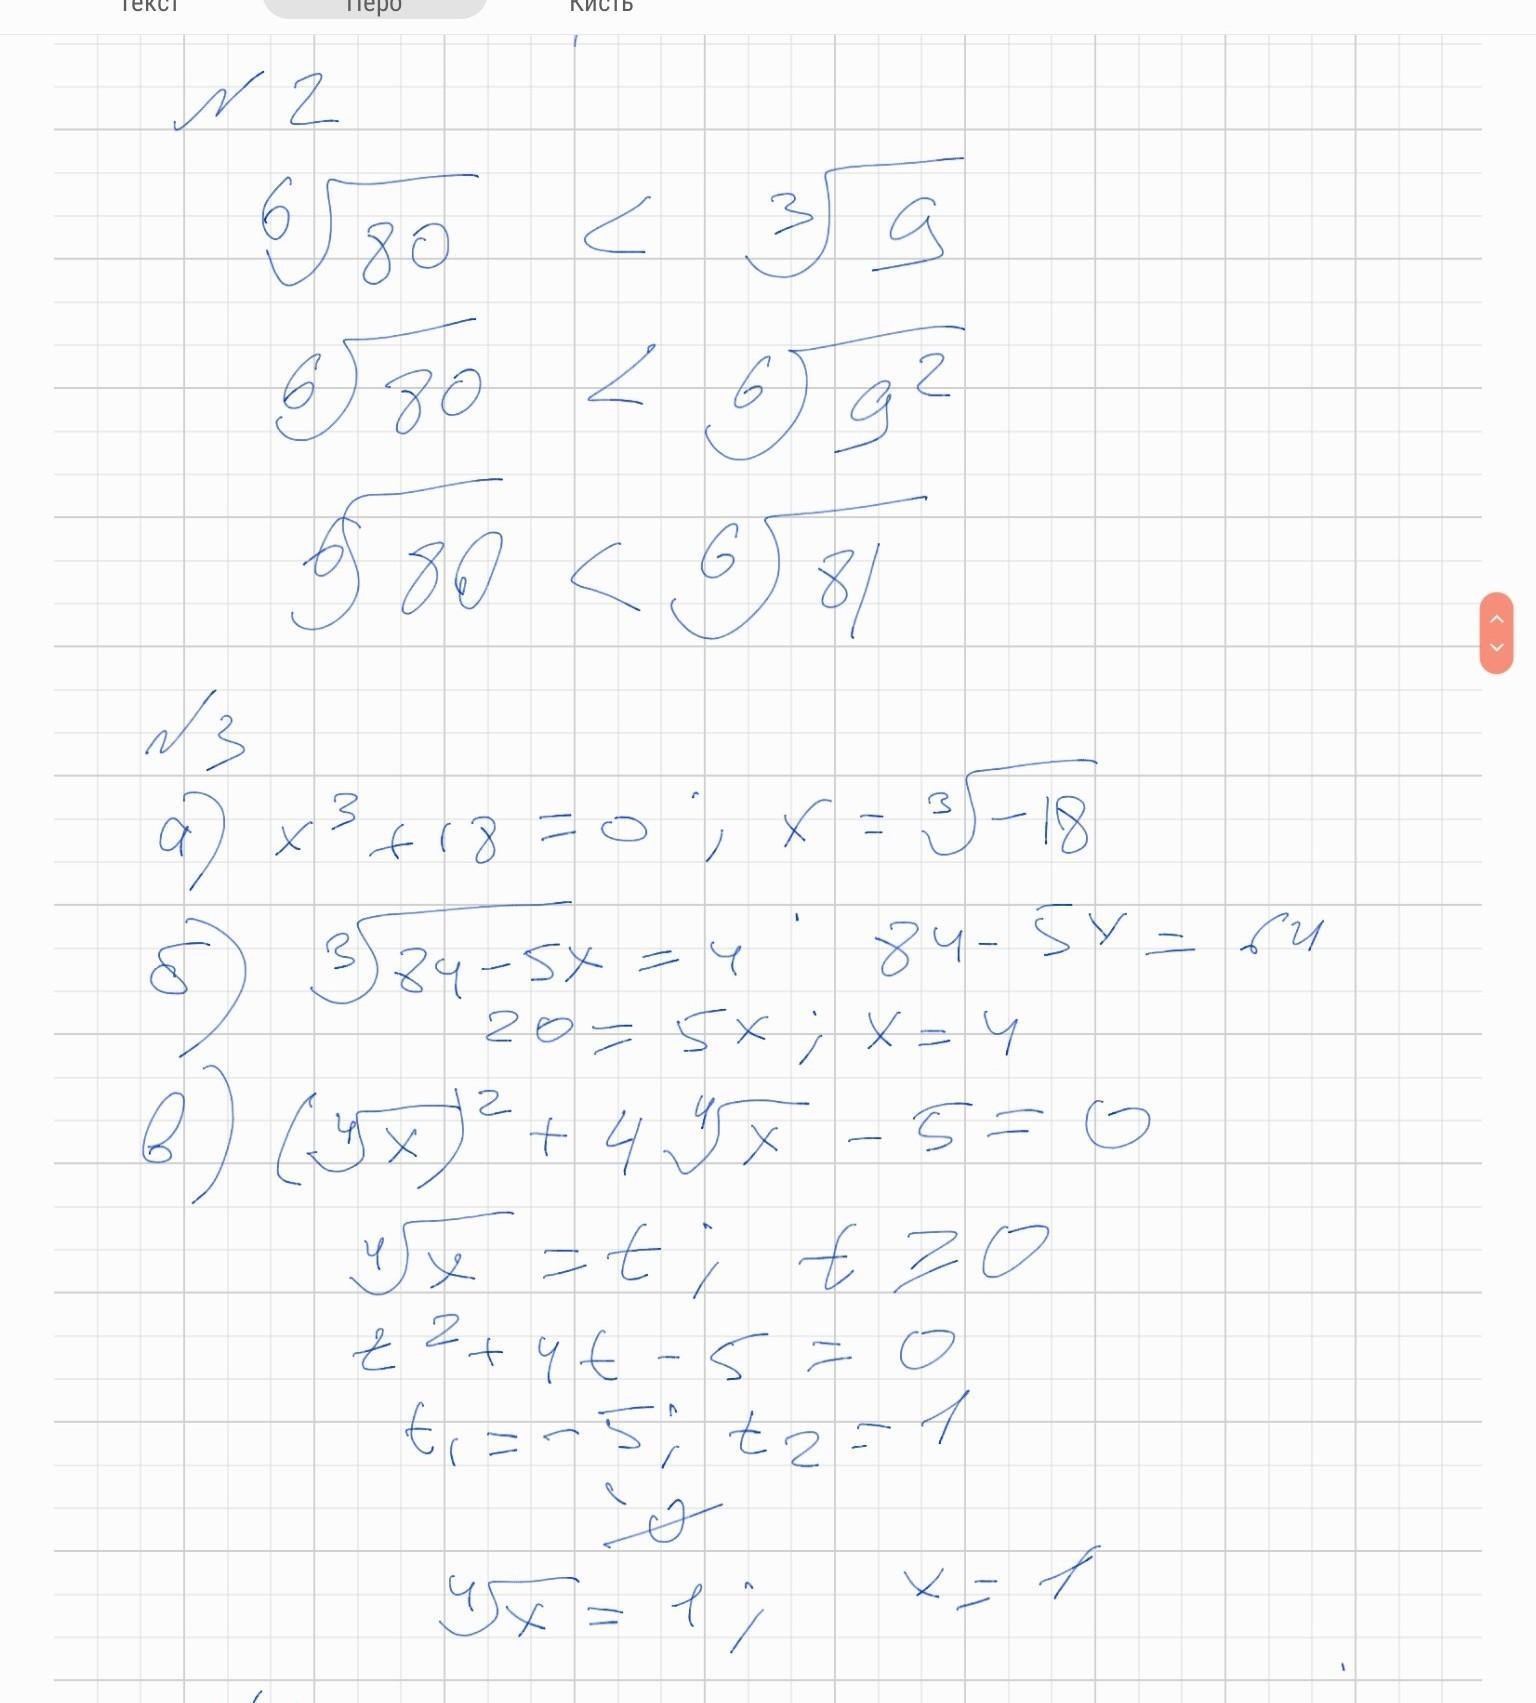 Текст Перо Кисть
N 2
⁶√80 < ³√9
⁶√80 < ⁶√9²
⁶√80 < ⁶√81
N 3
а) x³ + 18 = 0 ; x = ³√-18
б) ³√84-5x = 4 84 - 5x = 64
20 = 5x ; x = 4
в) (⁴√x)² + 4 ⁴√x - 5 = 0
⁴√x = t ; t ≥ 0
t² + 4t - 5 = 0
t₁ = -5; t₂ = 1
⁴√x = 1 ; x = 1